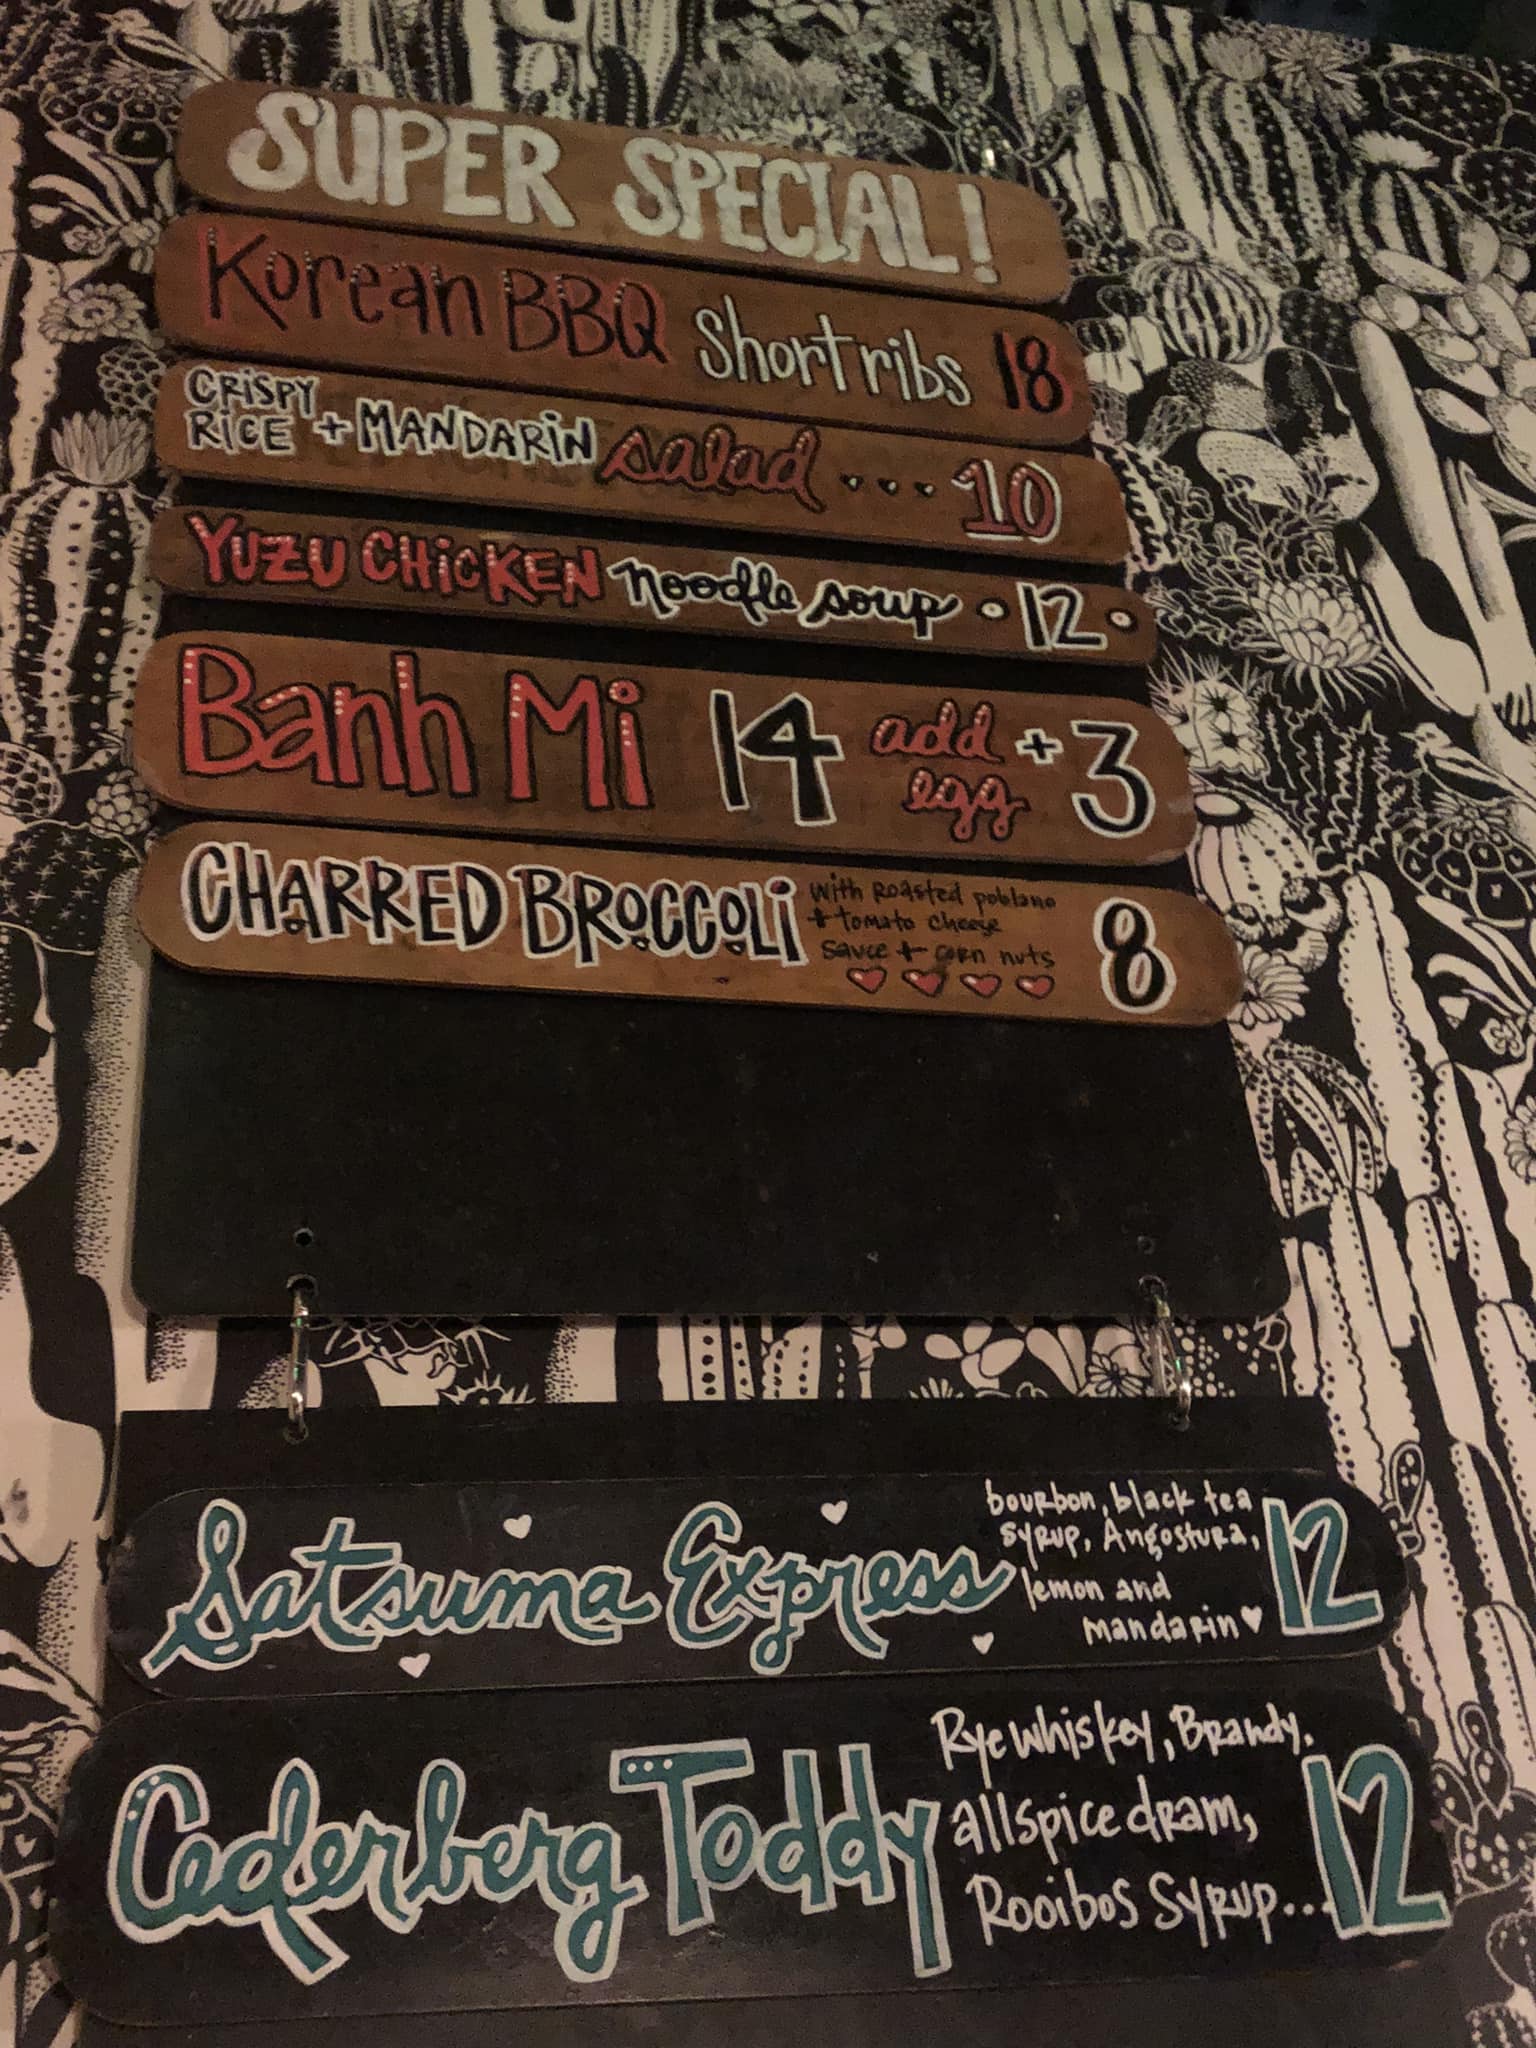 SUPER SPECIAL!
Korean BBQ Short ribs 18
CRISPY
RICE + MANDARIN salad ... 10
YUZU CHICKEN noodle soup • 12 •
Banh Mi 14 add egg + 3
CHARRED BROCCOLI with Roasted poblano
+ tomato cheese
sauce + corn nuts
8
Satsuma Express bourbon, black tea
syrup, Angostura,
lemon and
mandarin 12
Cederberg Toddy Rye whiskey, Brandy.
allspice dram,
Rooibos Syrup... 12